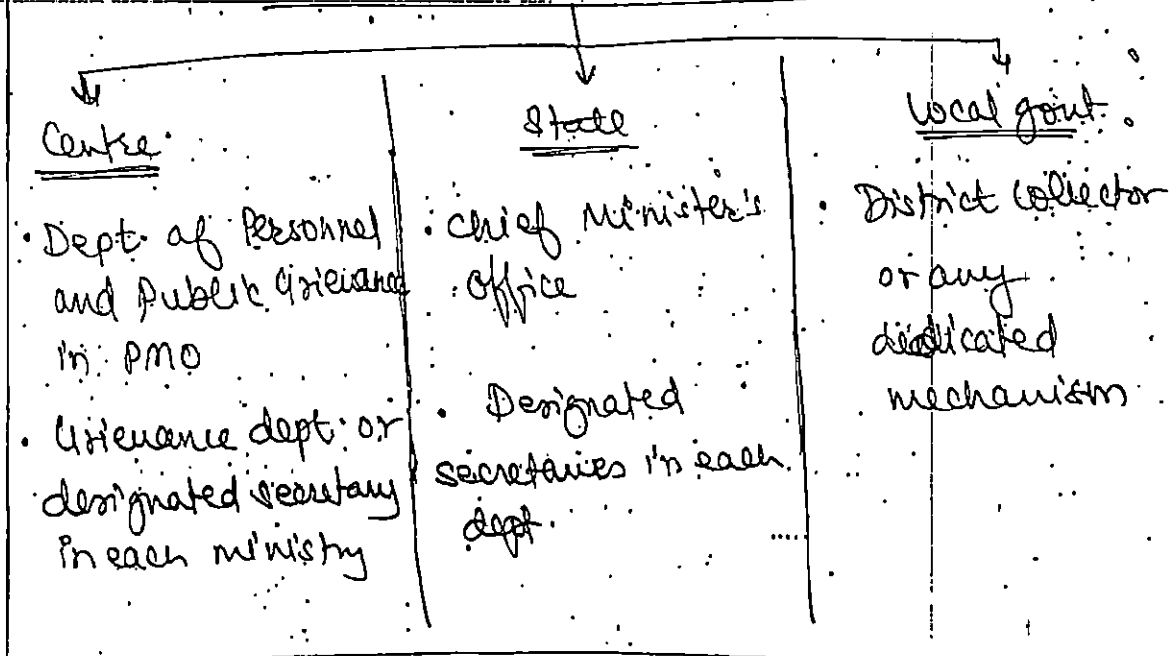 Centre
• Dept. of Personnel
and Public Grievance
in PMO
• Grievance dept. or
designated secretary
in each ministry
State
• Chief Minister's
office
• Designated
secretaries in each
dept.
Local govt.
• District Collector
or any
dedicated
mechanism.